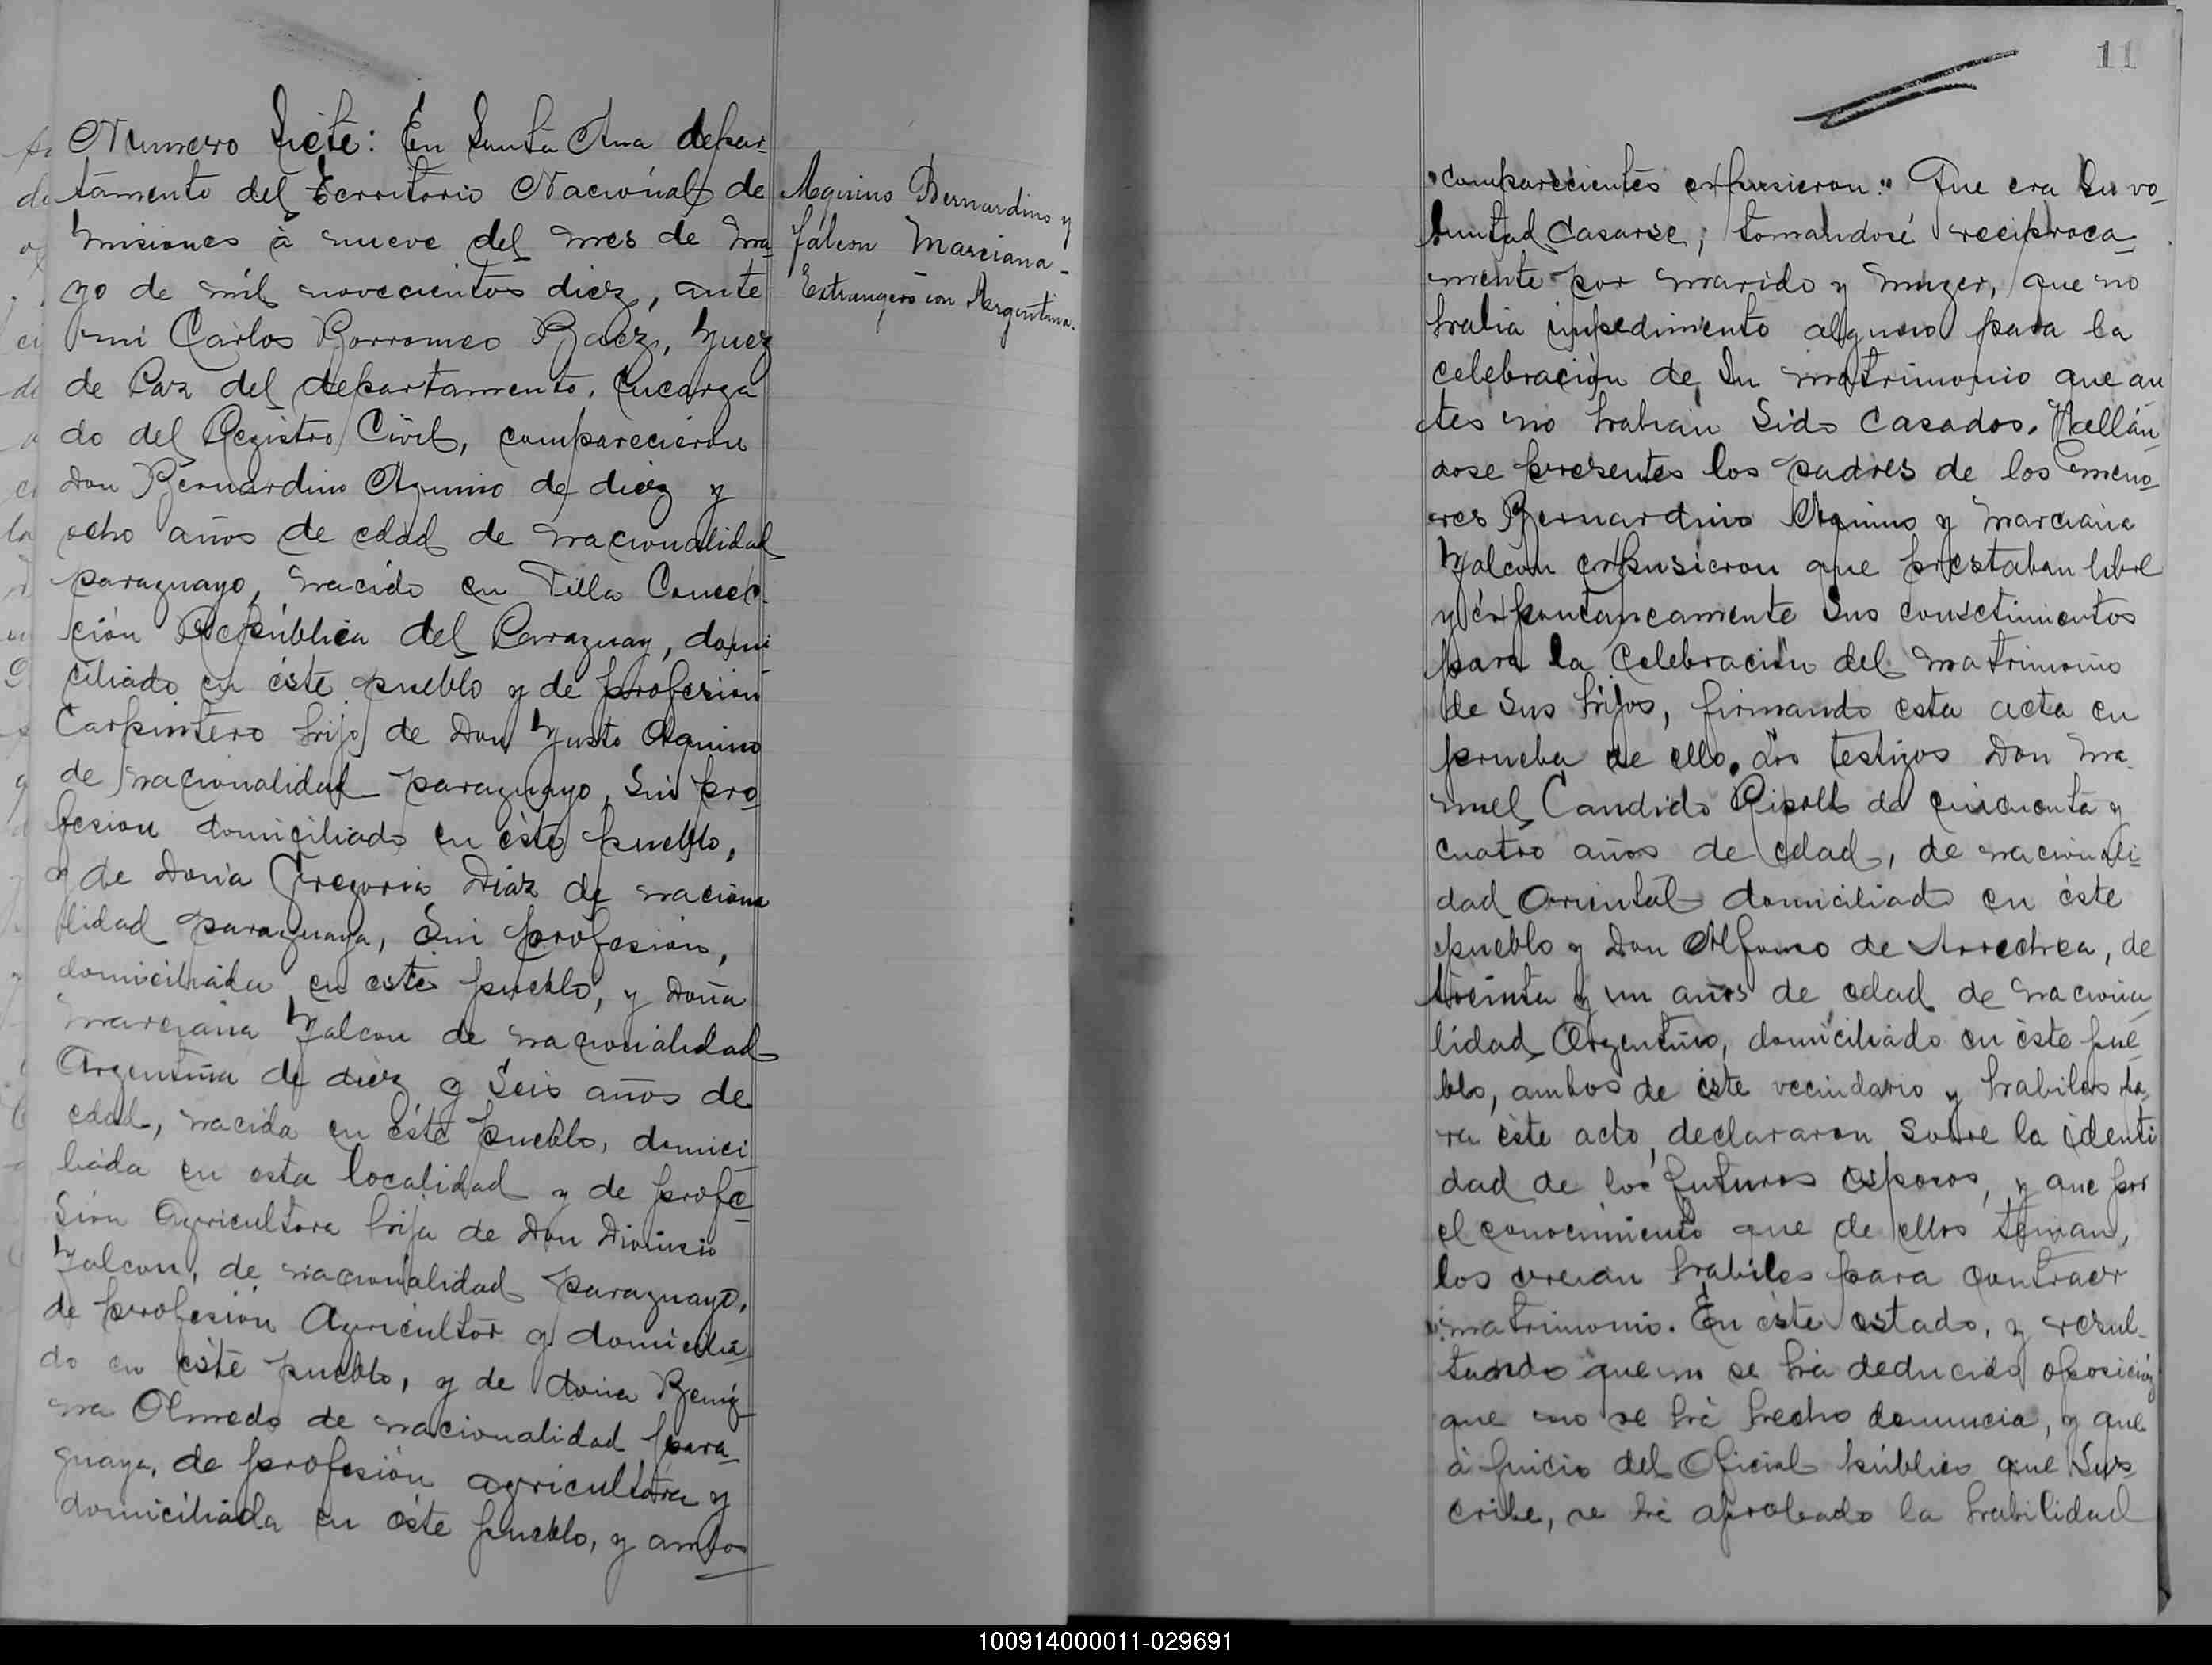 Numero Siete: En Santa Ana depar-
tamento del Territorio Nacional de
Misiones à nueve del mes de Ma-
yo de mil novecientos diez, ante
mi Carlos Borromeo Baez, Juez
de Paz del departamento, Encarga
do del Registro Civil, comparecieron
Don Bernardino Aquino de diez y
ocho años de edad de nacionalidad
paraguayo, nacido en Villa Concep-
ción República del Paraguay, domi
ciliado en éste pueblo y de profesion
Carpintero hijo de Don Justo Aquino
de nacionalidad paraguayo, Sin pro
fesion domiciliado en éste pueblo,
y de Doña Gregoria Diaz de naciona
lidad paraguaya, Sin profesion,
domiciliada en este pueblo, y Doña
Marciana Falcon de nacionalidad
Argentina de diez y Seis años de
edad, nacida en éste pueblo, domici
liada en esta localidad y de profe
Sion Agricultora hija de Don Dionisio
Falcon, de nacionalidad paraguayo,
de profesión Agricultor y domicilia
do en éste pueblo, y de doña Benig
na Olmedo de nacionalidad para-
guaya, de profesión agricultora y
domiciliada en éste pueblo, y ambos
Aquino Bernardino y
Falcon Marciana-
Extrangero con Argentina.
11
"comparecientes expusieron:" Que era Su vo-
luntad Casarse; tomandosé reciproca
mente por marido y muger, que no
habia impedimento alguno para la
celebración de Su matrimonio que an
tes no habian Sido Casados. Hallán
dose presentes los padres de los meno-
res Bernardino Aquino y Marciana
Falcon expusieron que prestaban libre
y éxpontaneamente Sus consetimientos
para la Celebración del matrimonio
de Sus hijos, firmando esta acta en
prueba de ello. Los testigos Don Ma-
nuel Candido Ripoll de cincuenta y
cuatro años de edad, de nacionali-
dad Oriental domiciliado en éste
pueblo y Don Alfonso de Arrechea, de
treinta y un años de edad de naciona
lidad Argentino, domiciliado en éste pue-
blo, ambos de éste vecindario y habiles pa-
ra éste acto, declararon Sobre la identi
dad de los futuros esposos, y que por
el conocimiento que de ellos tenian,
los creian habiles para contraer
matrimonio. En éste estado, y resul-
tando que no se há deducido oposición
que no se há hecho denuncia, y que
à juicio del Oficial público que Sus-
cribe, se há aprobado la habilidad
100914000011-029691